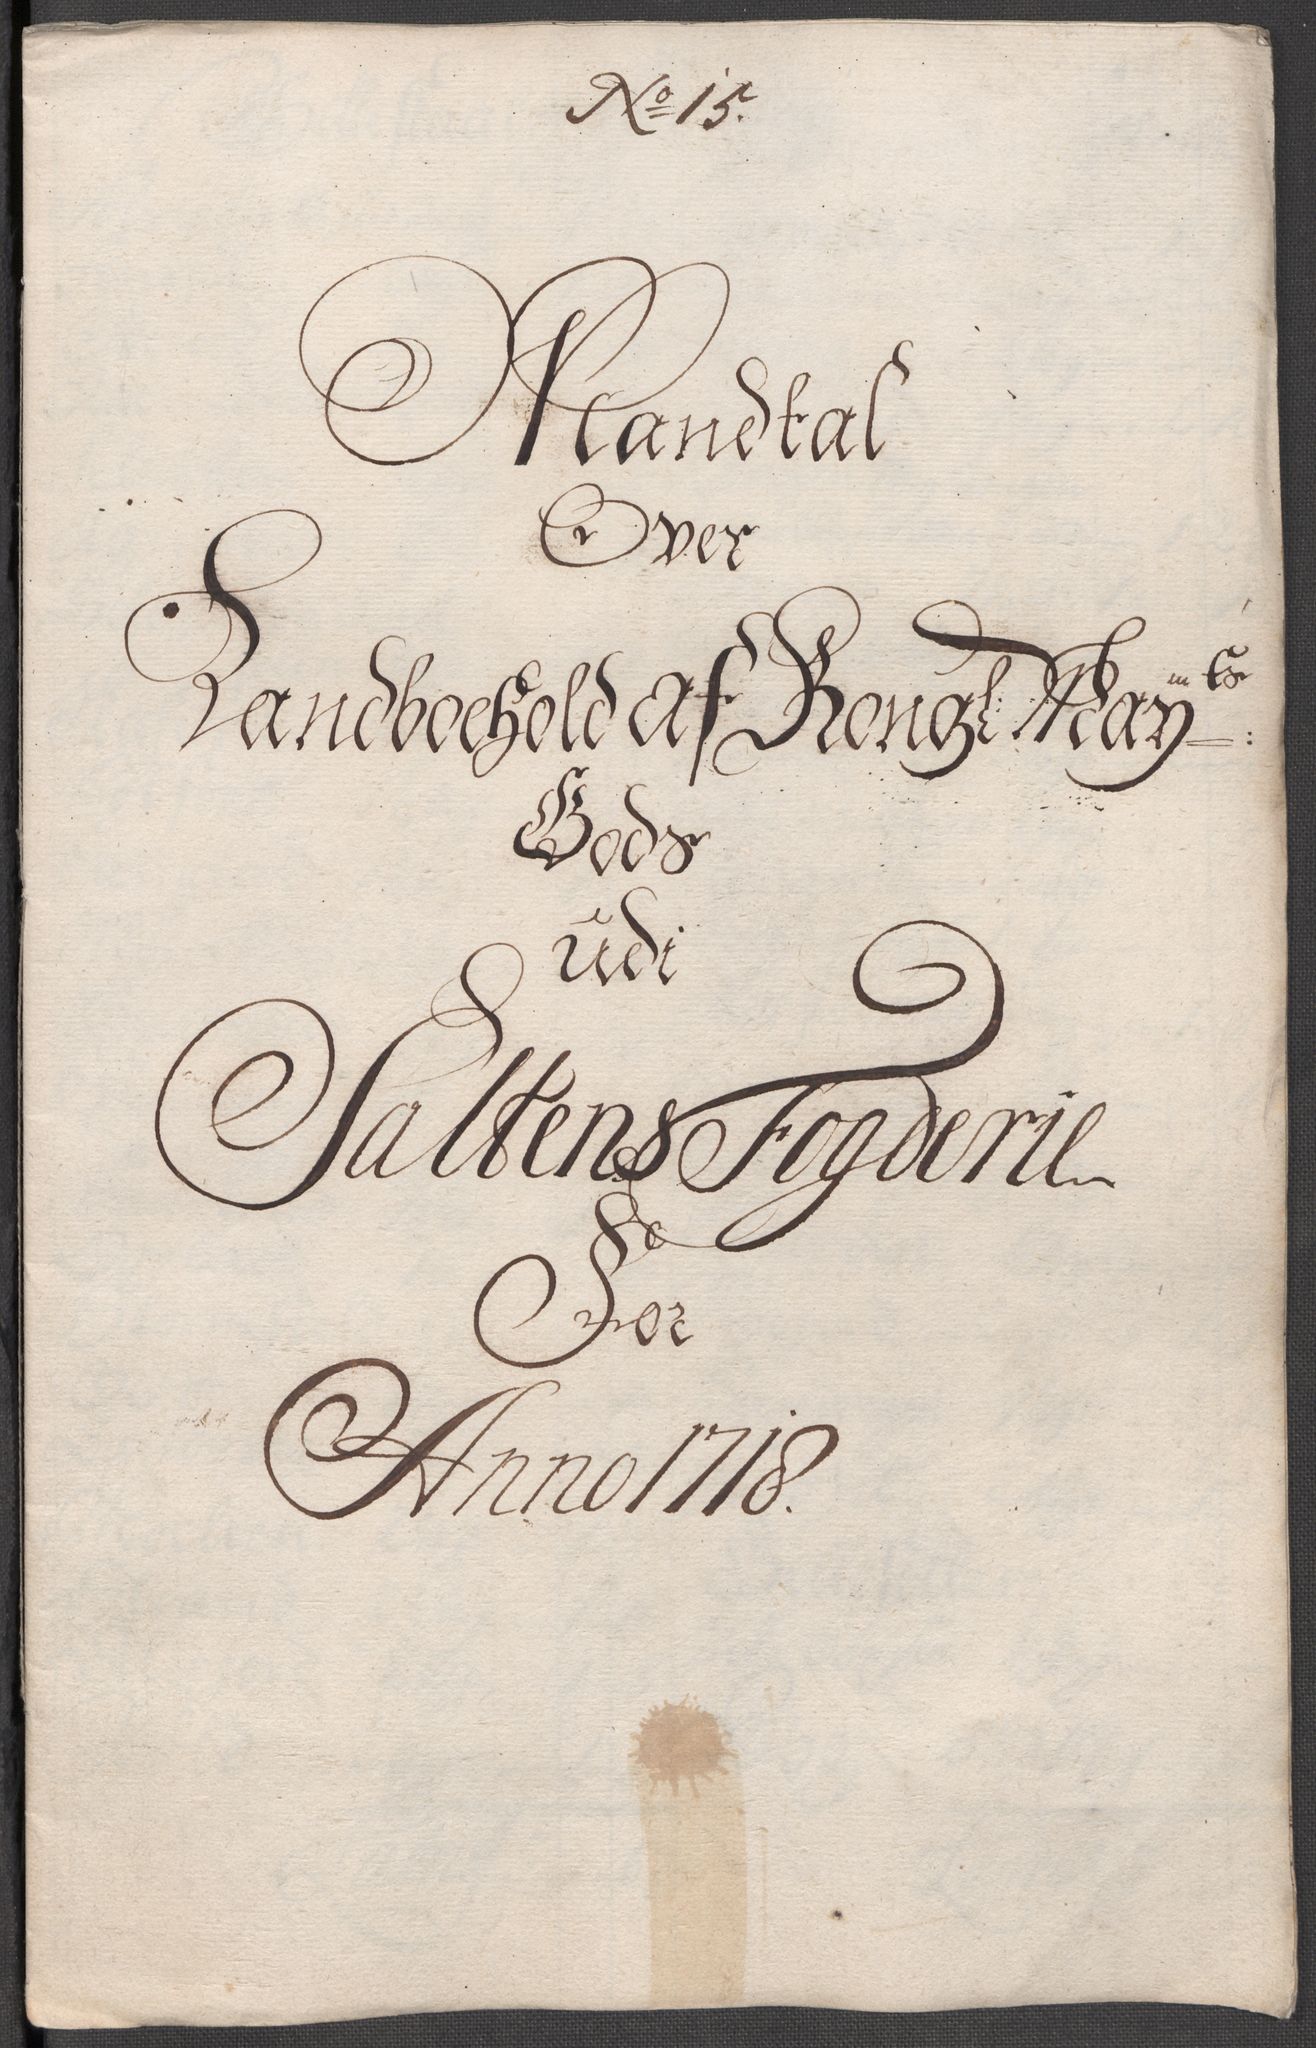 No 15.
Mandtal
Over
Landboehold af Kongl: May:ts
Gods
udi
Saltens Fogderie
For
Anno 1718.